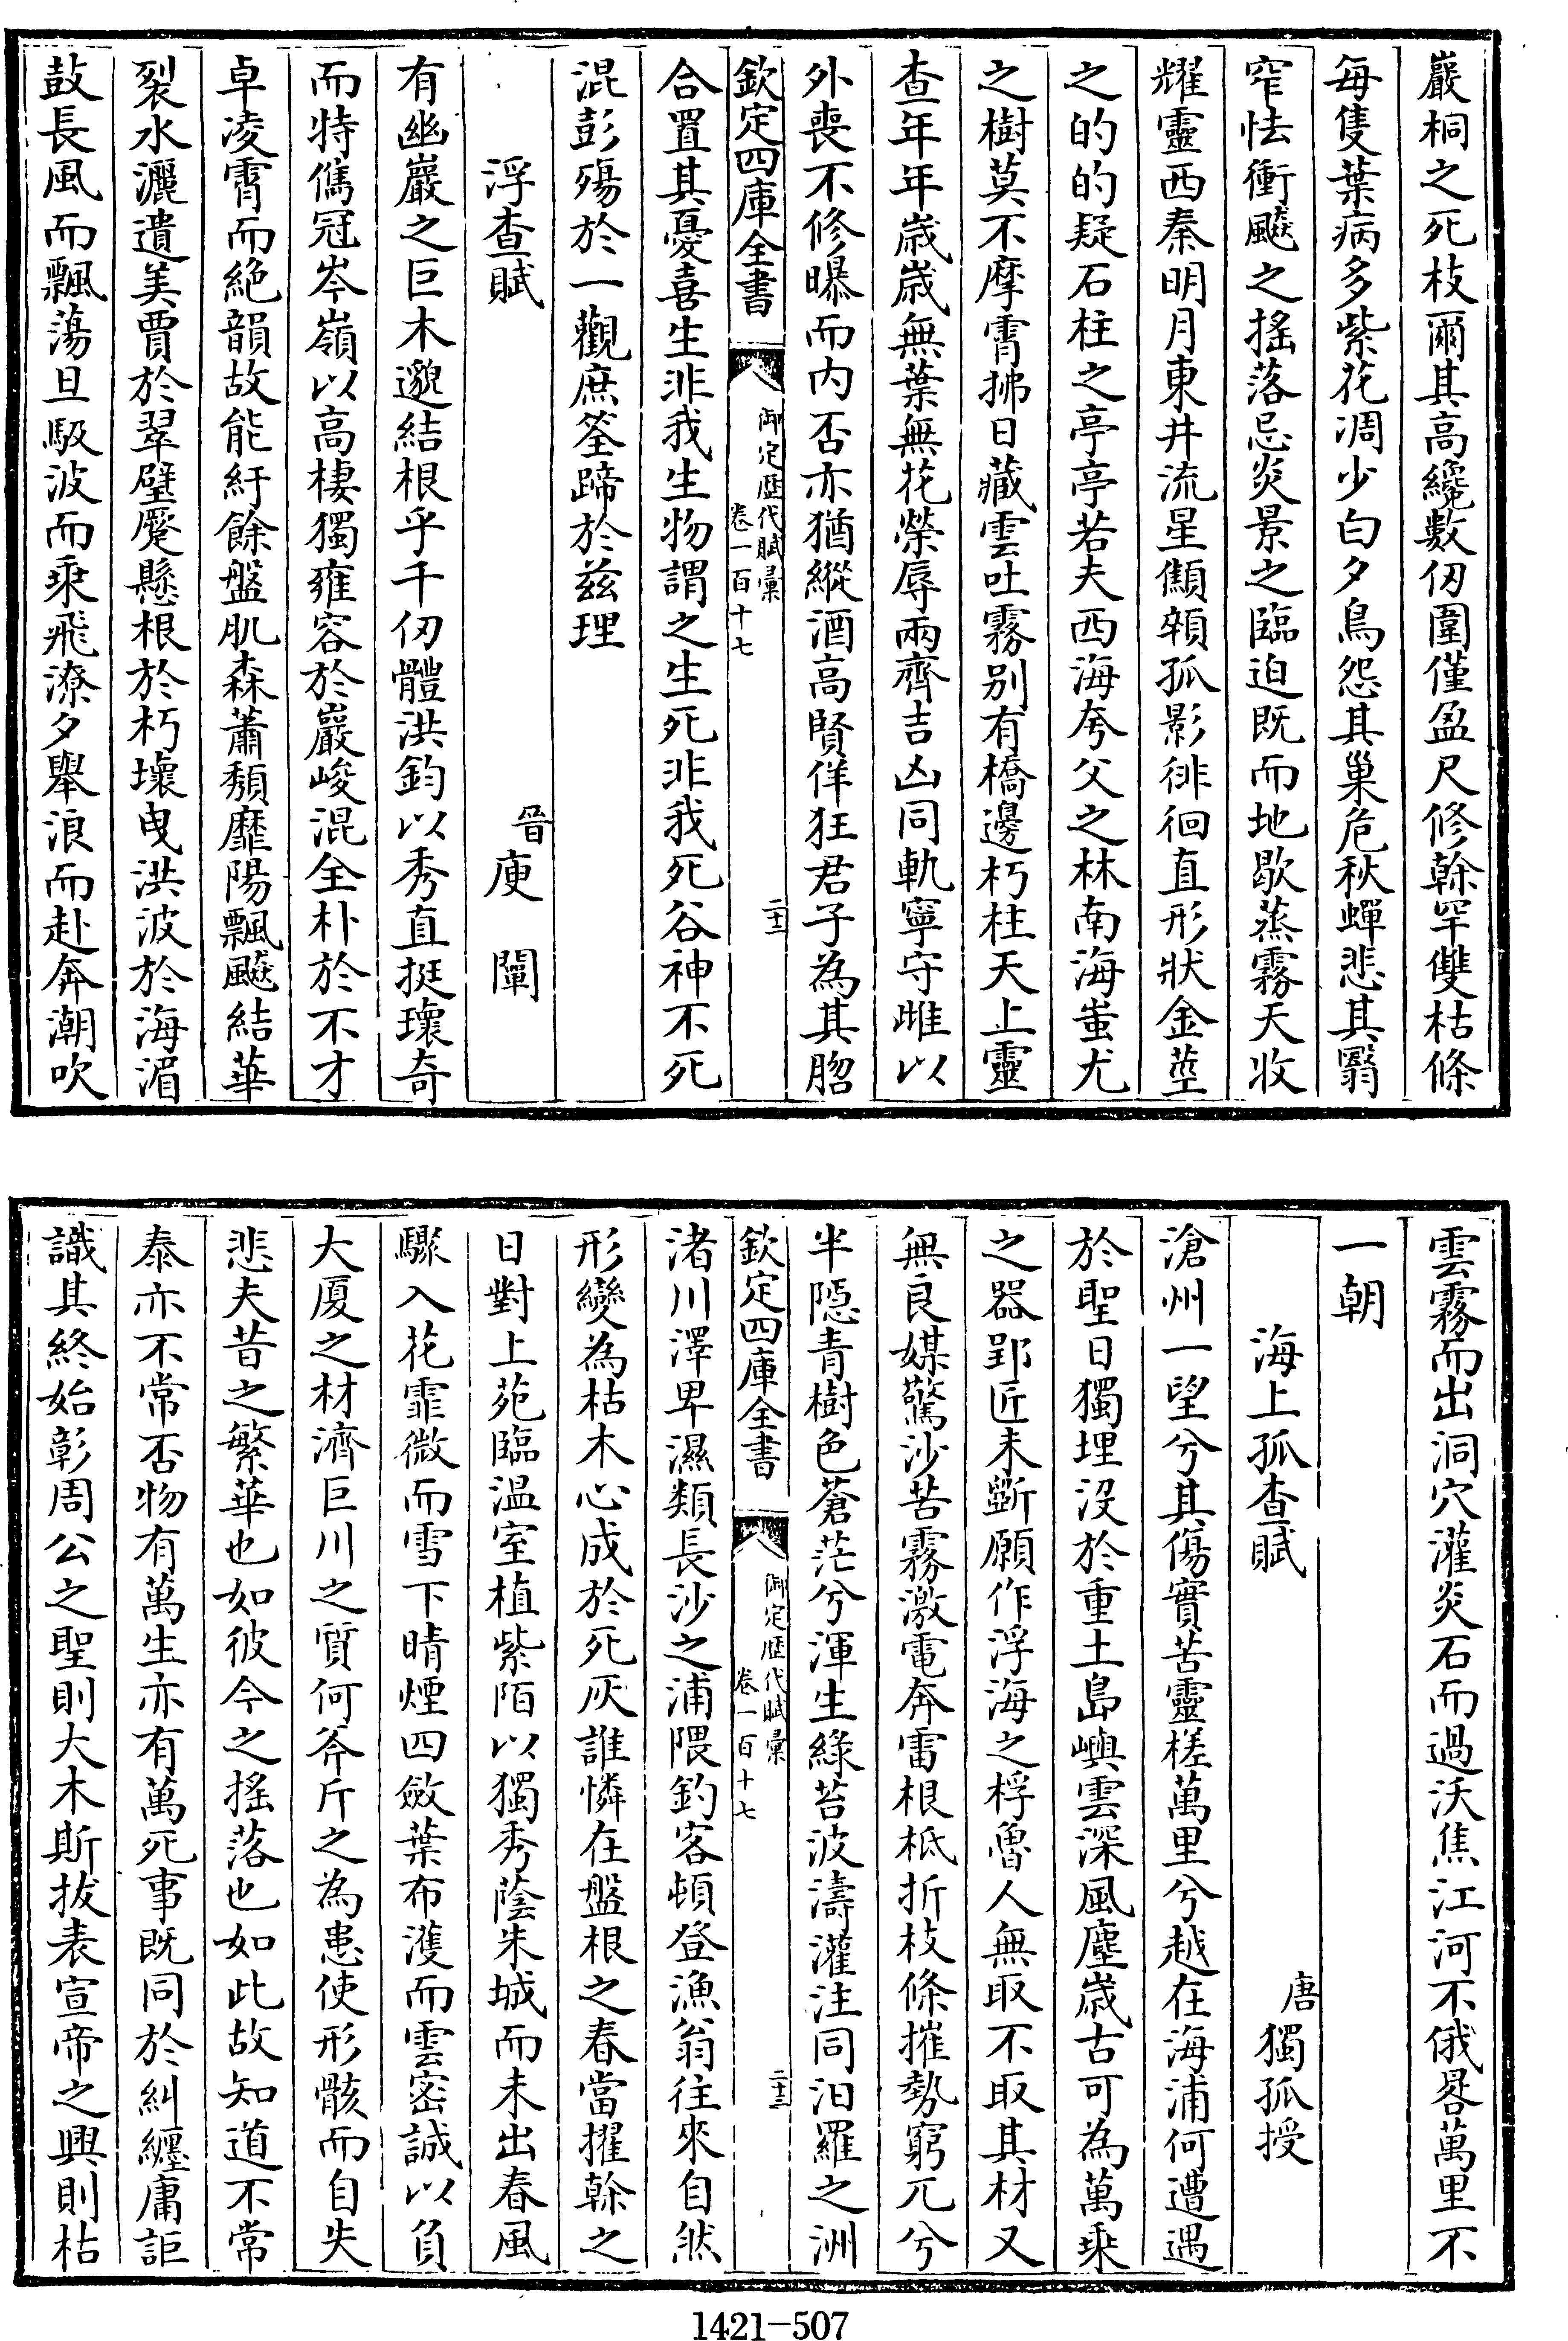 巖桐之死枝爾其高纔數仞圍僅盈尺修榦罕雙枯條
每隻葉病多紫花凋少白夕鳥怨其巢危秋蟬悲其翳
窄怯衝飈之搖落忌炎景之臨迫既而地歇蒸霧天收
耀靈西秦明月東井流星𩔗顇孤影徘徊直形狀金莖
之的的疑石柱之亭亭若夫西海夸父之林南海蚩尤
之樹莫不摩霄拂日藏雲吐霧别有橋邊朽柱天上靈
查年年歲歲無葉無花榮辱兩齊吉凶同軌寧守雌以
外喪不修曝而内否亦猶縱酒高賢佯狂君子為其吻
欽定四庫全書 御定歴代賦彙 卷一百十七 二十二
合置其憂喜生非我生物謂之生死非我死谷神不死
混彭殤於一觀庶筌蹄於兹理
浮查賦
晉庾 闡
有幽巖之巨木邈結根乎千仞體洪鈞以秀直挺瓌奇
而特儁冠岑嶺以高棲獨雍容於巖峻混全朴於不才
卓凌霄而絶韻故能紆餘盤肌森蕭頽靡陽飄飈結華
裂水灑遺美賈於翠璧壓懸根於朽壤曳洪波於海湄
鼓長風而飄蕩旦馭波而乘飛潦夕舉浪而赴奔潮吹
雲霧而出洞穴灌炎石而過沃焦江河不俄晷萬里不
一朝
海上孤查賦
唐獨孤授
滄州一望兮其傷實苦靈槎萬里兮越在海浦何遭遇
於聖日獨埋没於重土島嶼雲深風塵歲古可為萬乘
之器郢匠未斵願作浮海之桴魯人無取不取其材又
無良媒驚沙苦霧激電奔雷根柢折枝條摧勢窮兀兮
半隱青樹色蒼茫兮渾生綠苔波濤灌注同汨羅之洲
欽定四庫全書 御定歴代賦彙 卷一百十七 二十三
渚川澤卑濕類長沙之浦隈釣客頓登漁翁往來自然
形變為枯木心成於死灰誰憐在盤根之春當擢榦之
日對上苑臨温室植紫陌以獨秀蔭朱城而未出春風
驟入花霏微而雪下晴煙四斂葉布濩而雲密誠以負
大厦之材濟巨川之質何斧斤之為患使形骸而自失
悲夫昔之繁華也如彼今之搖落也如此故知道不常
泰亦不常否物有萬生亦有萬死事既同於糾纆庸詎
識其終始彰周公之聖則大木斯拔表宣帝之興則枯
1421-507